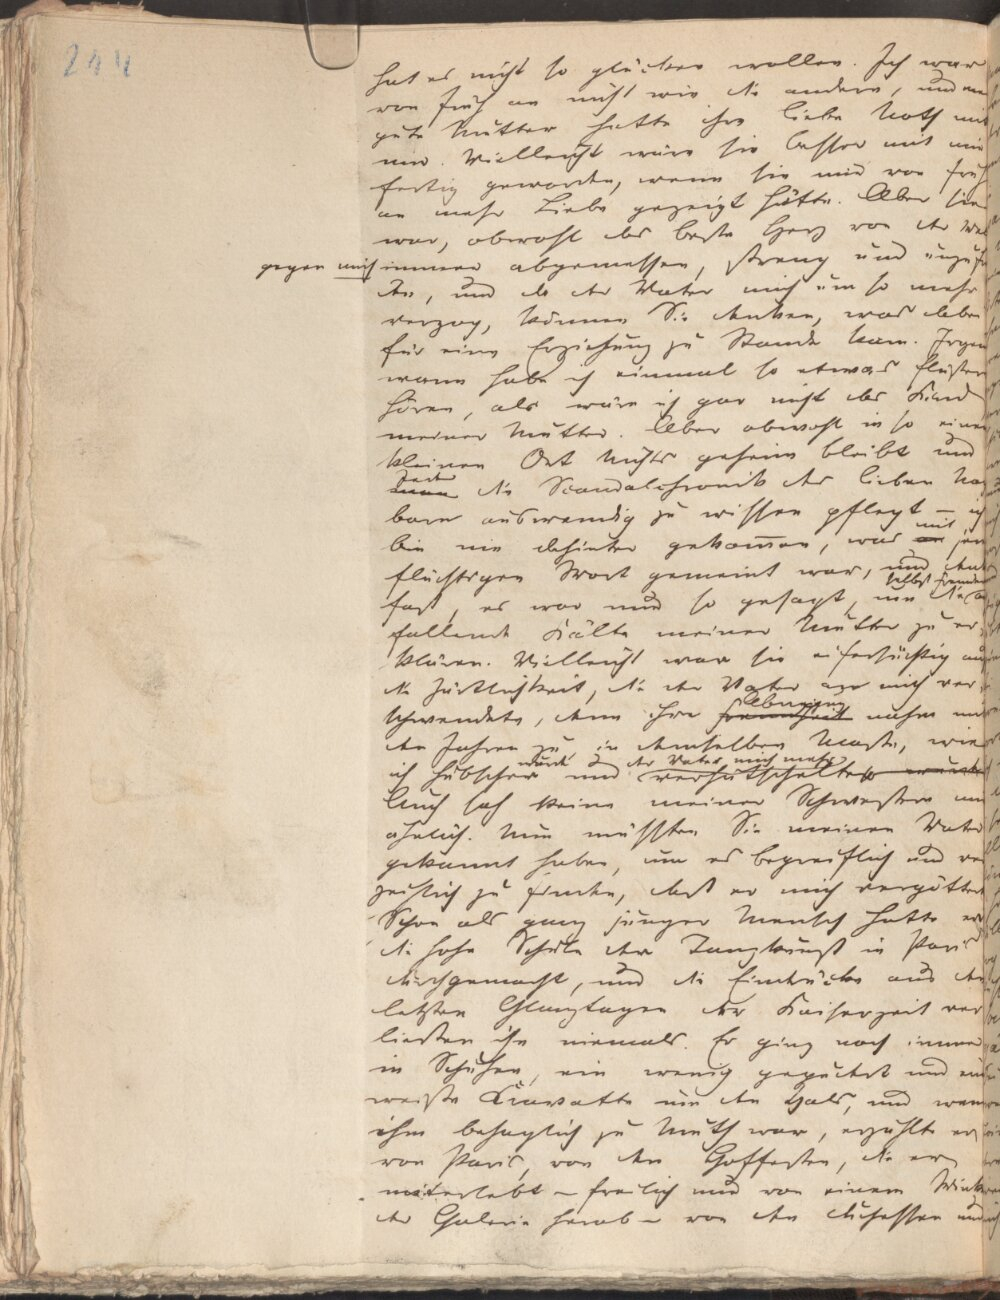 244
hat es nicht so glücken wollen. Ich war
von früh an nicht wie die andern, und meine
gute Mutter hatte ihre liebe Noth mit
mir. Vielleicht wäre sie besser mit mir
fertig geworden, wenn sie mir von früh
an mehr Liebe gezeigt hätte. Aber sie
war, obwohl das beste Herz von der Welt
gegen mich immer abgemessen, streng und unzufrie
den, und da der Vater mich um so mehr
verzog, können Sie denken, was dabei
für eine Erziehung zu Stande kam. Irgend
wann habe ich einmal so etwas flüstern
hören, als wäre ich gar nicht das Kind
meiner Mutter. Aber obwohl in so einem
kleinen Ort Nichts geheim bleibt und
Jeder
man die Scandalchronik der lieben Nach
barn auswendig zu wissen pflegt – ich
mit
bin nie dahinter gekommen, was an jenem
flüchtigen Wort gemeint war, und denke
selbst Fremden
fast, es war nur so gesagt, um die auf
fallende Kälte meiner Mutter zu er
klären. Vielleicht war sie eifersüchtig auf
die Zärtlichkeit, die der Vater an mich ver
Abneigung
schwendete, denn ihre Fremdheit nahm mit
den Jahren zu, in demselben Maße, wie
wurde der Vater mich mehr
ich hübscher und verhätschelter wurde
Auch sah keine meiner Schwestern mir
ähnlich. Nun müßten Sie meinen Vater
gekannt haben, um es begreiflich und ver
zeihlich zu finden, daß er mich vergötterte
Schon als ganz junger Mensch hatte er
die hohe Schule der Tanzkunst in Paris
durchgemacht, und die Eindrücke aus den
letzten Glanztagen der Kaiserzeit ver
ließen ihn niemals. Er ging noch immer
in Schuhen, ein wenig gepudert und eine
weiße Kravatte um den Hals, und wenn
ihm behaglich zu Muth war, erzählte er
von Paris, von den Hoffesten, die er
miterlebt – freilich nur von einem Winkel
der Galerie herab – von den Duchessen und